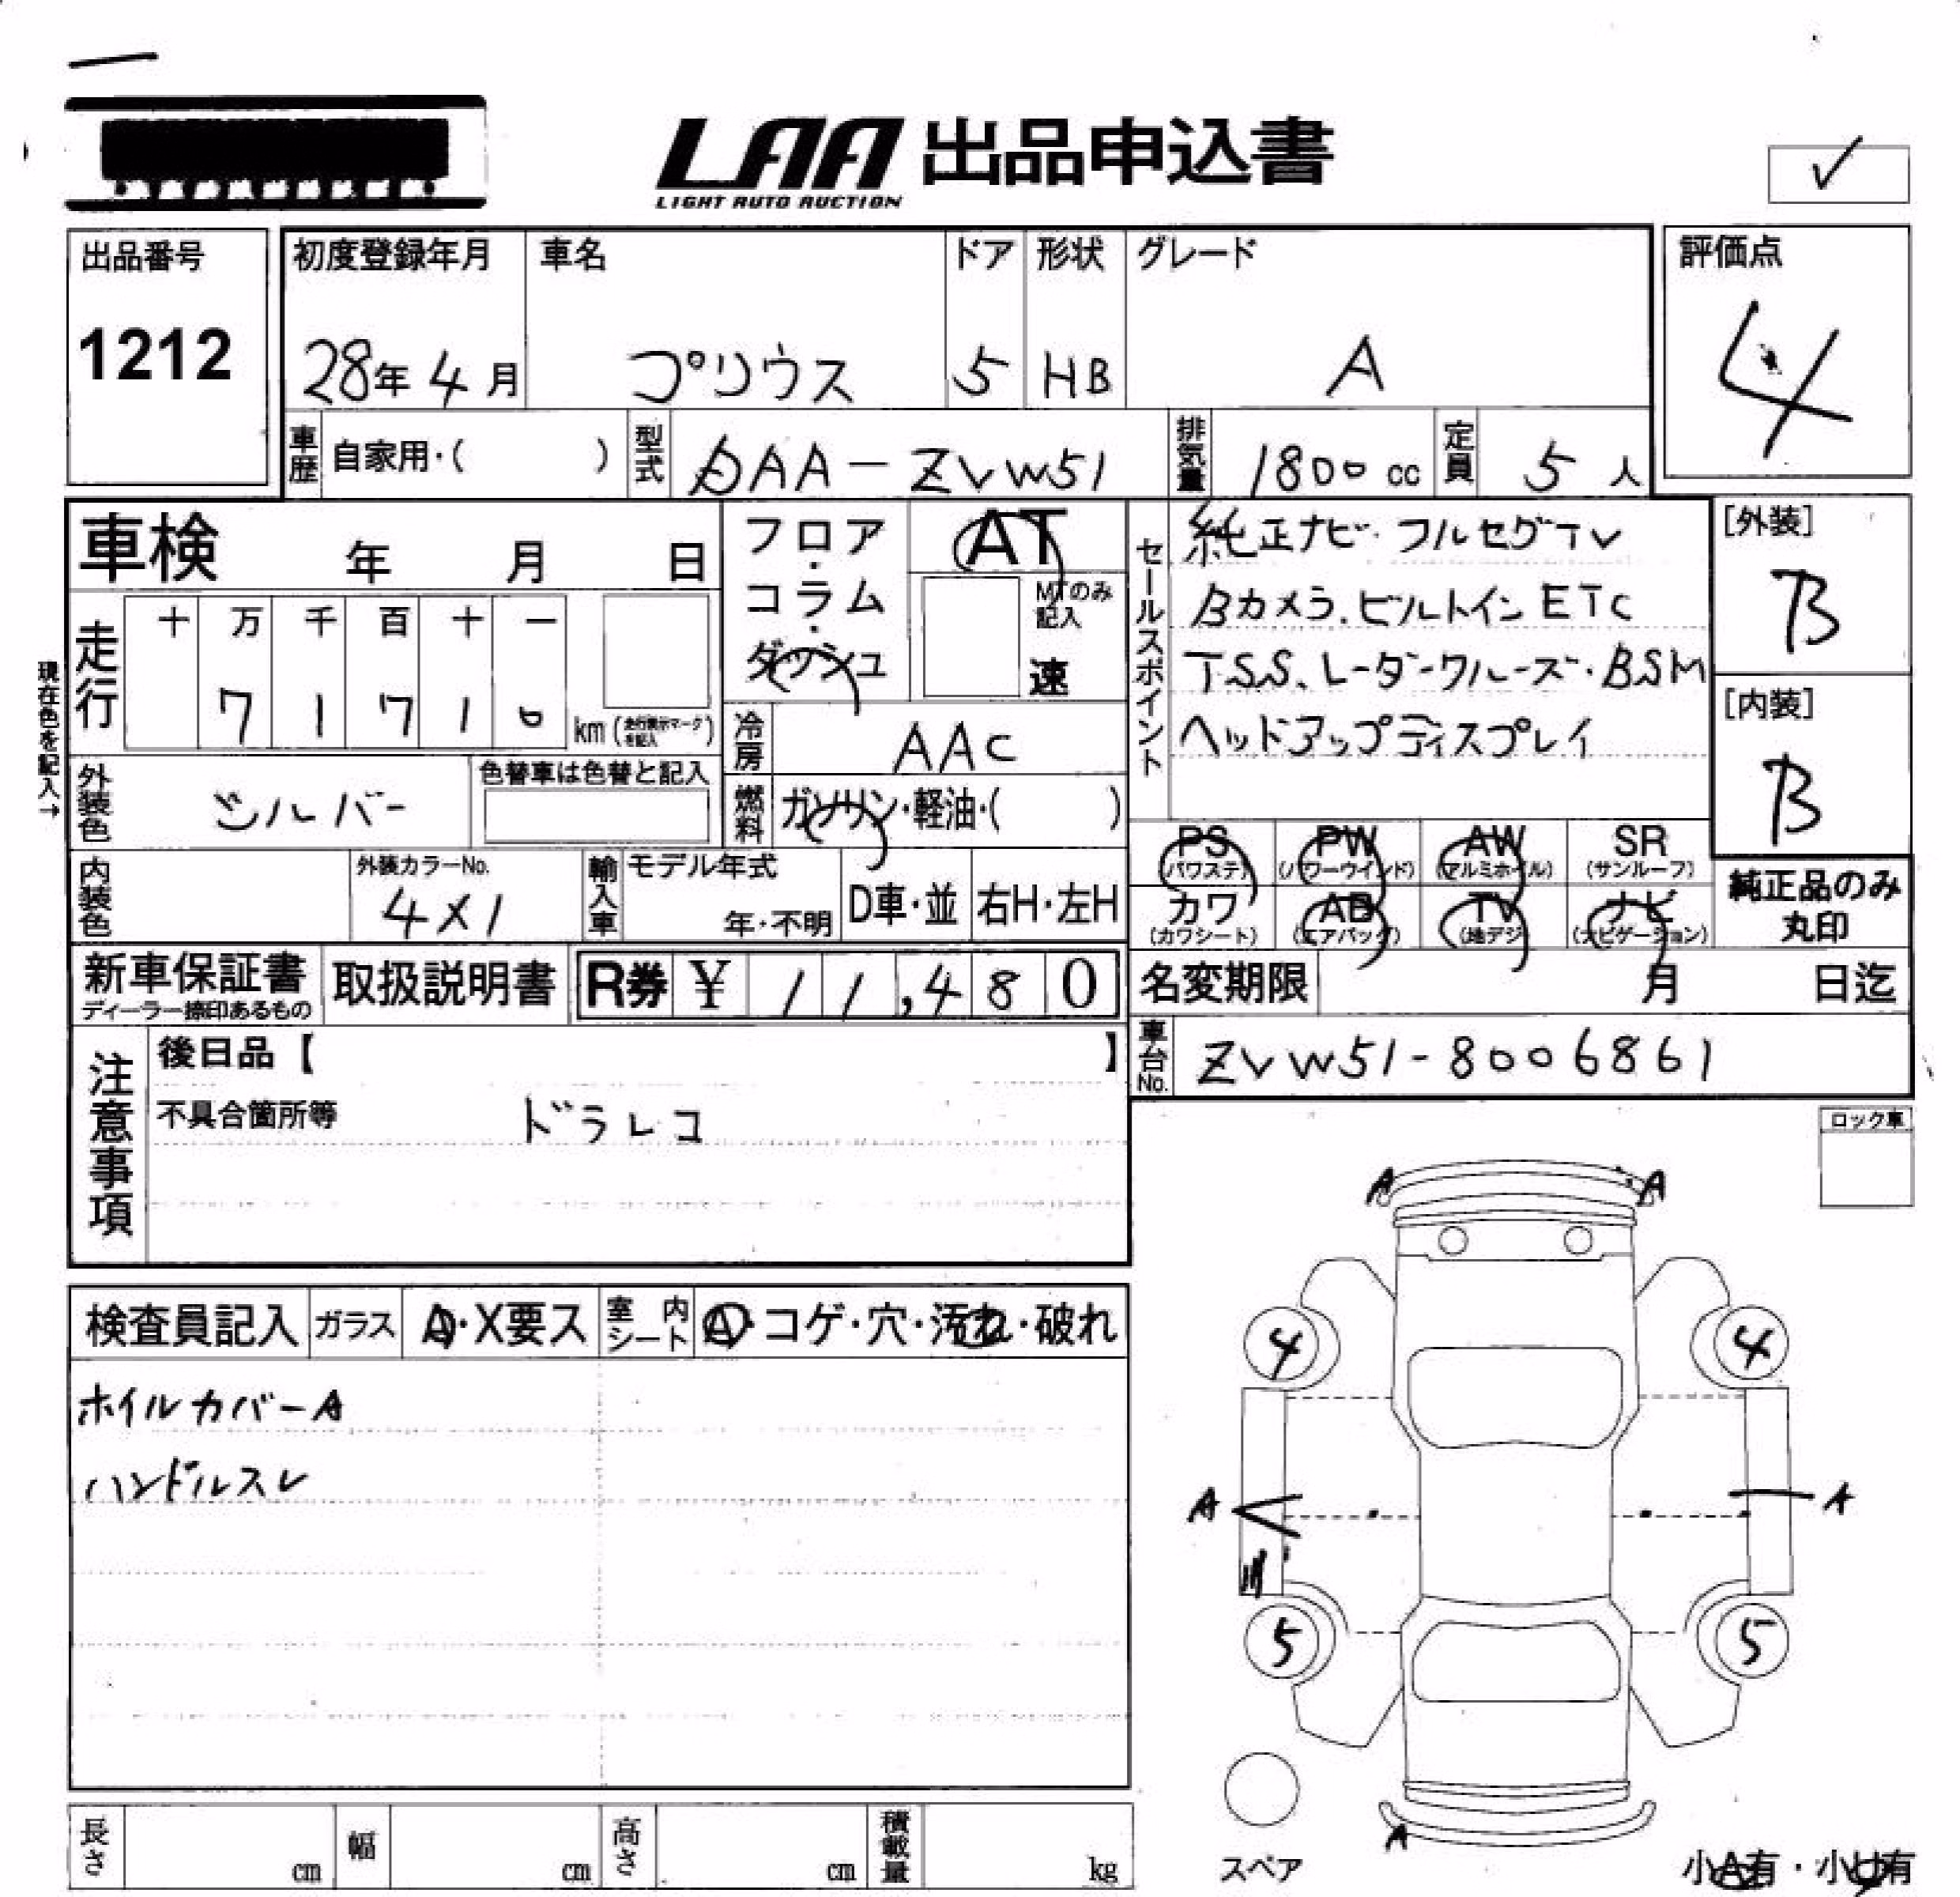 LAA 出品申込書
LIGHT AUTO AUCTION
✓
出品番号
1212
初度登録年月
28年 4月
車名
プリウス
ドア
5
形状
HB
グレード
A
評価点
4
車歴 自家用・( )
型式 DAA-ZVW51
排気量 1800 cc
定員 5 人
車検 年 月 日
フロア・コラム・ダッシュ
AT
MTのみ記入
速
セールスポイント
純正ナビ・フルセグTV
Bカメラ、ビルトインETC
TSS、レーダークルーズ・BSM
ヘッドアップディスプレイ
[外装]
B
[内装]
B
現在色を記入→
走行
十 万 千 百 十 一
7 1 7 1 0
km(走行表示マークを記入)
冷房 AAC
外装色 シルバー
色替車は色替と記入
燃料 ガソリン・軽油・( )
内装色
外装カラーNo.
4X1
輸入車
モデル年式
年・不明
D車・並
右H・左H
PS (パワステ)
PW (パワーウインド)
AW (アルミホイル)
SR (サンルーフ)
カワ (カワシート)
AB (エアバッグ)
TV (地デジ)
ナビ (ナビゲーション)
純正品のみ
丸印
新車保証書
ディーラー捺印あるもの
取扱説明書
R券 ¥ 11,480
名変期限 月 日迄
車台No. ZVW51-8006861
注意事項
後日品【 】
不具合箇所等 ドラレコ
ロック車
検査員記入
ガラス A・X要ス
室内シート A・コゲ・穴・汚れ・破れ
ホイルカバーA
ハンドルスレ
A A
4 4
A A
5 5
A
スペア
小A有・小U有
長さ cm
幅 cm
高さ cm
積載量 kg